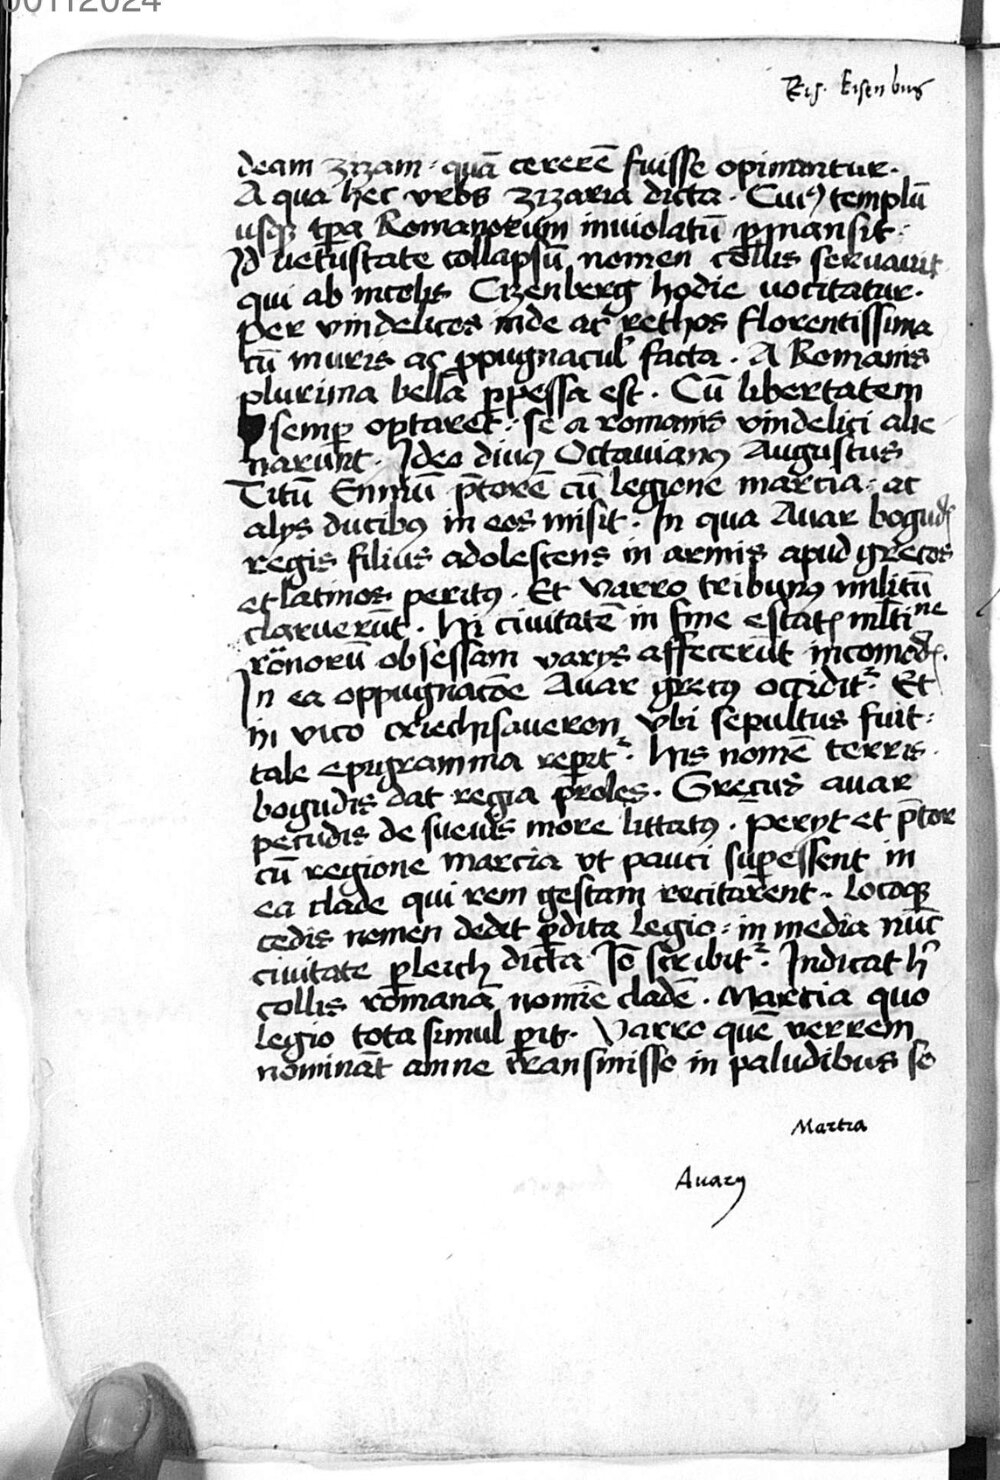 00112024
Eis. Eisenburg
deam zizam · quā cererē fuisse opinantur ·
A qua hec vrbs zizaria dicta · Cuiꝰ templū
usqꝫ tꝑa Romanorum inuiolatū ꝑmansit ·
Id uetustate collapsū nomen collis seruauit
qui ab incolis Cizenberg hodie uocitatur ·
per vindelicos inde ac rethos florentissima
cū muris ac ꝓpugnacul' facta · A Romanis
plurima bella ꝑpessa est · Cū libertatem
semꝑ optaret · se a romanis vindelici alie
narunt · Ideo diuꝰ Octauianꝰ Augustus
Titū Enniū p̄torē cū legione marcia · ac
alys ducibꝰ in eos misit · In qua Auar bogudꝭ
regis filius adolescens in armis apud grecos
et latinos peritꝰ · Et varro tribunꝰ militū
claruerūt · Hi ciuitatē in fine estatꝭ mlti ne
rōnorū obsessam varys affecerūt incomodꝭ ·
In ea oppugnacōe Auar grecꝰ occidit᷑ · Et
in vico criechsaueron vbi sepultus fuit ·
tale epigramma reꝑit᷑ · his nomē terris ·
bogudis dat regia proles · Grecus auar
pecudis de sueuis more littatꝰ · peryt et p̄tor
cū regione marcia vt pauci suꝑessent in
ea clade qui rem gestam recitarent · locoqꝫ
cedis nomen dedit ꝑdita legio · in media nūc
ciuitate perleich dicta Iō scribit᷑ · Indicat h̄
collis romanā nomīe cladē · Marcia quo
legio tota simul ꝑit · Varro quē verrem
nomināt amne transmisso in paludibus se
Martia
Auarꝰ